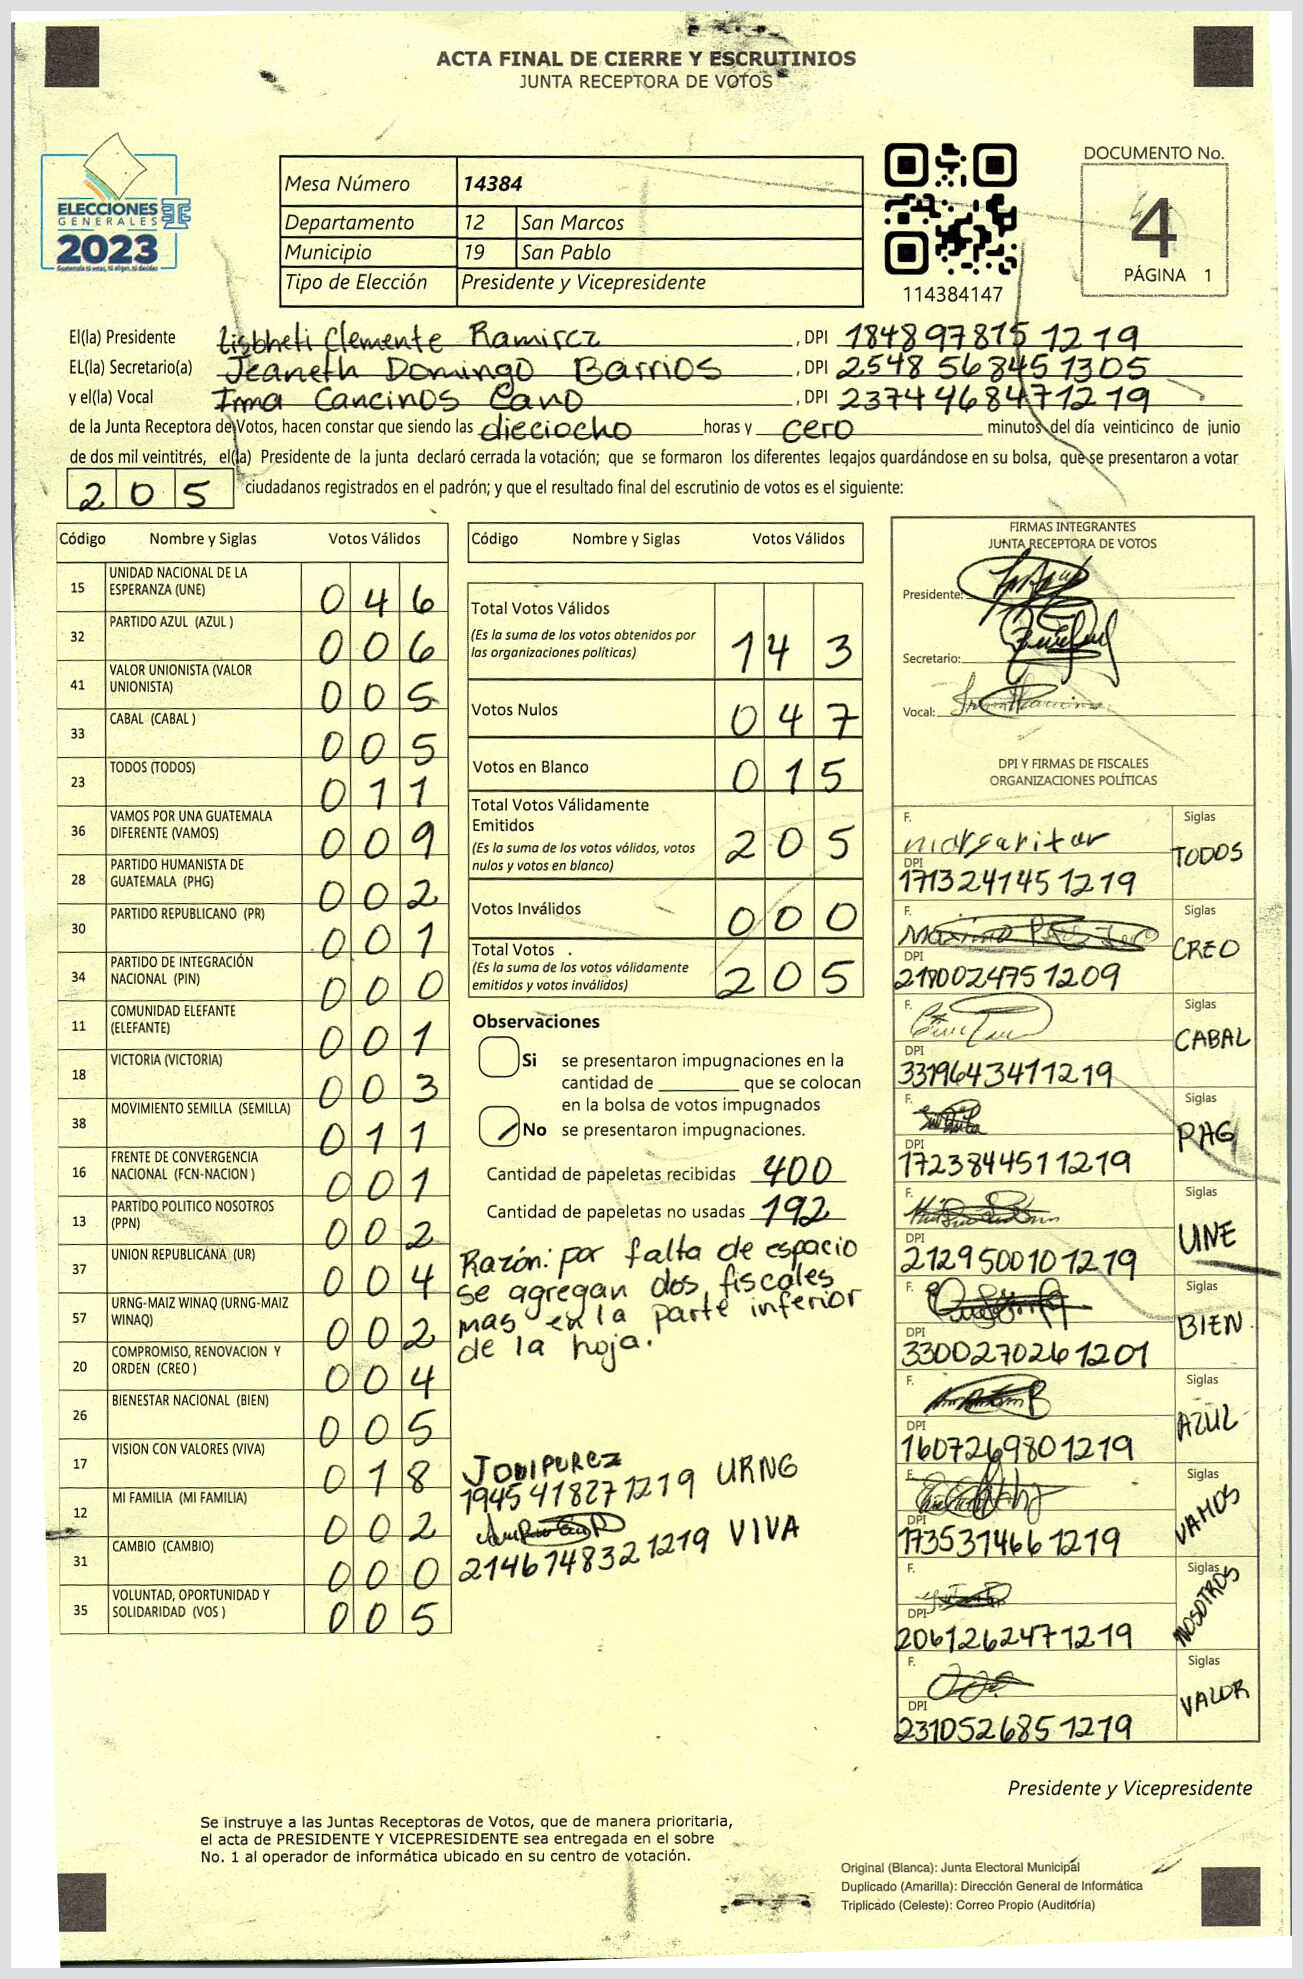 ACTA FINAL DE CIERRE Y ESCRUTINIOS
JUNTA RECEPTORA DE VOTOS
ELECCIONES
GENERALES
2023
Mesa Número 14384
Departamento 12 San Marcos
Municipio 19 San Pablo
Tipo de Elección Presidente y Vicepresidente
114384147
DOCUMENTO No.
4
PÁGINA 1
El(la) Presidente Lisbheti Clemente Ramirez, DPI 1848978151219
EL(la) Secretario(a) Jeaneth Domingo Barrios, DPI 2548568451305
y el(la) Vocal Irma Cancinos Cano, DPI 2374468471219
de la Junta Receptora de Votos, hacen constar que siendo las dieciocho horas y cero minutos del día veinticinco de junio
de dos mil veintitrés, el(la) Presidente de la junta declaró cerrada la votación; que se formaron los diferentes legajos guardándose en su bolsa, que se presentaron a votar
205 ciudadanos registrados en el padrón; y que el resultado final del escrutinio de votos es el siguiente:
Código Nombre y Siglas Votos Válidos
15 UNIDAD NACIONAL DE LA ESPERANZA (UNE) 046
32 PARTIDO AZUL (AZUL ) 006
41 VALOR UNIONISTA (VALOR UNIONISTA) 005
33 CABAL (CABAL ) 005
23 TODOS (TODOS) 011
36 VAMOS POR UNA GUATEMALA DIFERENTE (VAMOS) 009
28 PARTIDO HUMANISTA DE GUATEMALA (PHG) 002
30 PARTIDO REPUBLICANO (PR) 001
34 PARTIDO DE INTEGRACIÓN NACIONAL (PIN) 000
11 COMUNIDAD ELEFANTE (ELEFANTE) 001
18 VICTORIA (VICTORIA) 003
38 MOVIMIENTO SEMILLA (SEMILLA) 011
16 FRENTE DE CONVERGENCIA NACIONAL (FCN-NACION ) 001
13 PARTIDO POLITICO NOSOTROS (PPN) 002
37 UNION REPUBLICANA (UR) 004
57 URNG-MAIZ WINAQ (URNG-MAIZ WINAQ) 002
20 COMPROMISO, RENOVACION Y ORDEN (CREO ) 004
26 BIENESTAR NACIONAL (BIEN) 005
17 VISION CON VALORES (VIVA) 018
12 MI FAMILIA (MI FAMILIA) 002
31 CAMBIO (CAMBIO) 000
35 VOLUNTAD, OPORTUNIDAD Y SOLIDARIDAD (VOS ) 005
Código Nombre y Siglas Votos Válidos
Total Votos Válidos 143
(Es la suma de los votos obtenidos por
las organizaciones políticas)
Votos Nulos 047
Votos en Blanco 015
Total Votos Válidamente
Emitidos 205
(Es la suma de los votos válidos, votos
nulos y votos en blanco)
Votos Inválidos 000
Total Votos 205
(Es la suma de los votos válidamente
emitidos y votos inválidos)
Observaciones
Si se presentaron impugnaciones en la
cantidad de ________ que se colocan
en la bolsa de votos impugnados
No se presentaron impugnaciones.
Cantidad de papeletas recibidas 400
Cantidad de papeletas no usadas 192
Razón: por falta de espacio
se agregan dos fiscales
mas en la parte inferior
de la hoja.
1945418271219 URNG
2146748321219 VIVA
FIRMAS INTEGRANTES
JUNTA RECEPTORA DE VOTOS
Presidente:
Secretario:
Vocal:
DPI Y FIRMAS DE FISCALES
ORGANIZACIONES POLÍTICAS
F. Siglas
TODOS
DPI
1713241451219
F. Siglas
CREO
DPI
2180024751209
F. Siglas
CABAL
DPI
3319643411219
F. Siglas
PHG
DPI
1723844511219
F. Siglas
UNE
DPI
2129500101219
F. Siglas
BIEN
DPI
3300270261201
F. Siglas
AZUL
DPI
1607269801219
F. Siglas
VAMOS
DPI
1735314661219
F. Siglas
NOSOTROS
DPI
2061262471219
F. Siglas
VALOR
DPI
2310526851219
Presidente y Vicepresidente
Se instruye a las Juntas Receptoras de Votos, que de manera prioritaria,
el acta de PRESIDENTE Y VICEPRESIDENTE sea entregada en el sobre
No. 1 al operador de informática ubicado en su centro de votación.
Original (Blanca): Junta Electoral Municipal
Duplicado (Amarilla): Dirección General de Informática
Triplicado (Celeste): Correo Propio (Auditoría)